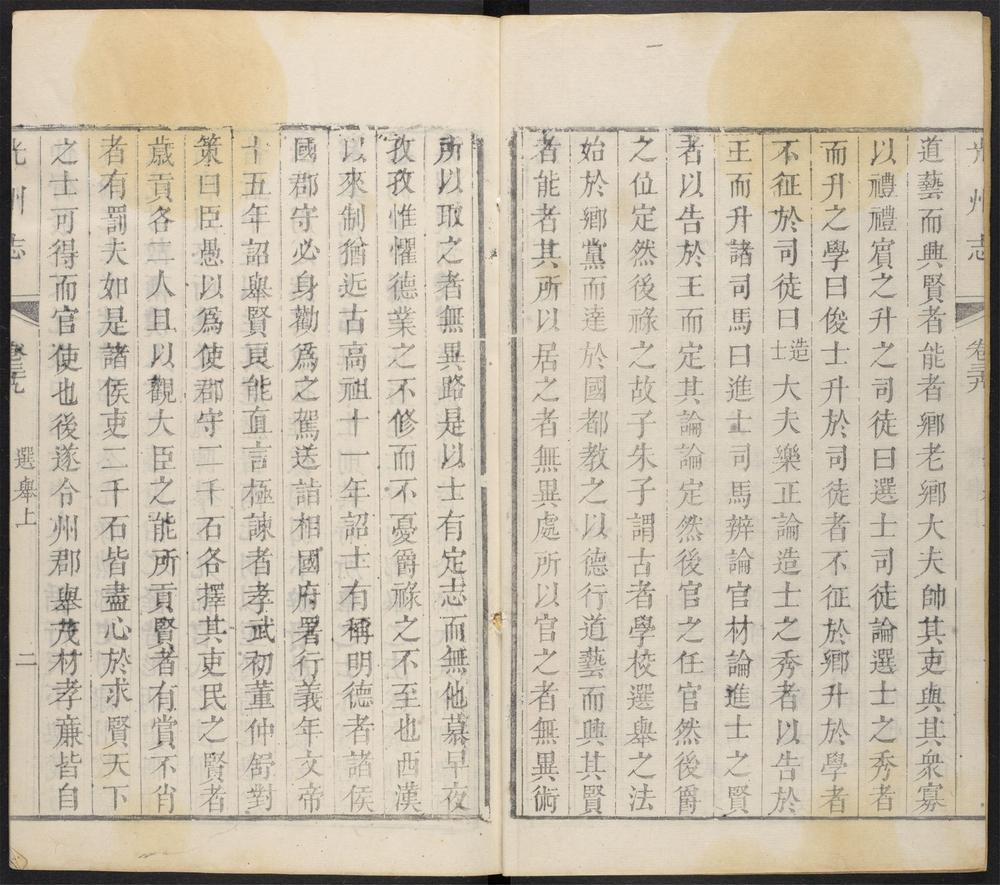 光州志 卷三十九
道藝而興賢者能者鄉老鄉大夫帥其吏與其衆寡
以禮禮賓之升之司徒曰選士司徒論選士之秀者
而升之學曰俊士升於司徒者不征於鄉升於學者
不征於司徒曰造士大夫樂正論造士之秀者以告於
王而升諸司馬曰進士司馬辨論官材論進士之賢
者以告於王而定其論論定然後官之任官然後爵
之位定然後祿之故子朱子謂古者學校選舉之法
始於鄉黨而達於國都教之以德行道藝而興其賢
者能者其所以居之者無異處所以官之者無異術
所以取之者無異路是以士有定志而無他慕早夜
孜孜惟懼德業之不修而不憂爵祿之不至也西漢
以來制猶近古高祖十一年詔士有稱明德者諸侯
國郡守必身勸為之駕送詣相國府署行義年文帝
十五年詔舉賢良能直言極諫者孝武初董仲舒對
策曰臣愚以為使郡守二千石各擇其吏民之賢者
歲貢各二人且以觀大臣之能所貢賢者有賞不肖
者有罰夫如是諸侯吏二千石皆盡心於求賢天下
之士可得而官使也後遂令州郡舉茂材孝廉皆自
光州志 卷三十九 選舉上 二